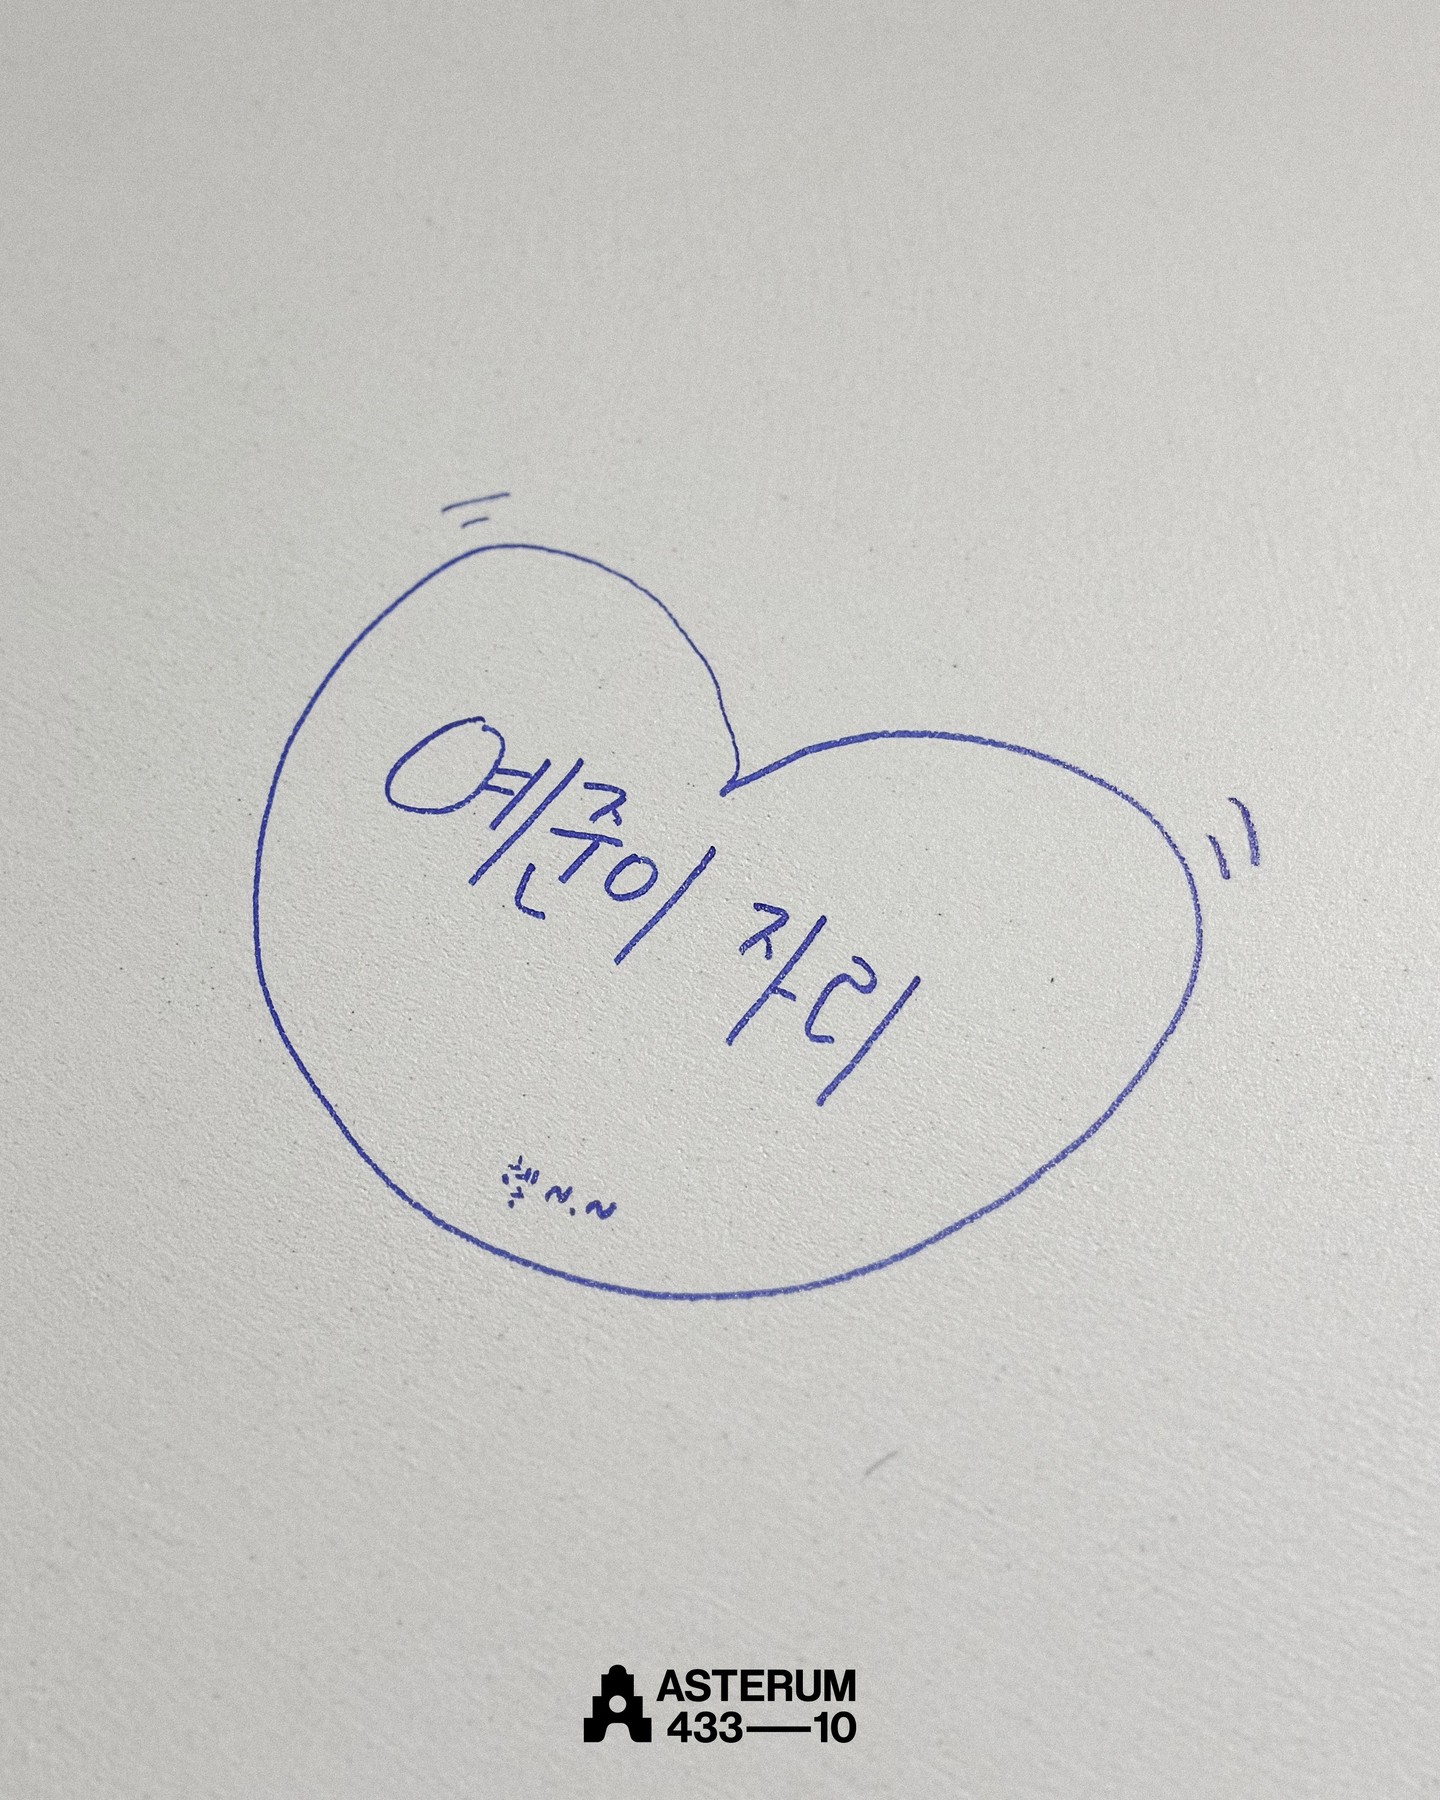 예준이 자리
ASTERUM
433—10